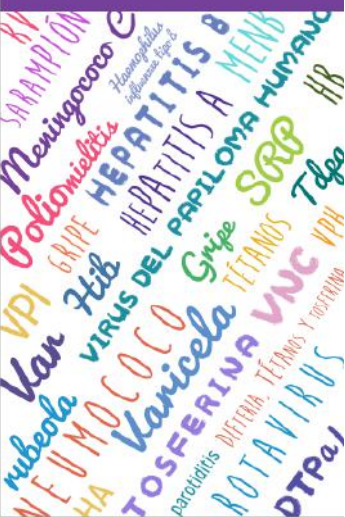 RV
SARAMPIÓN
Meningococo C
Haemophilus
influenzae tipo B
HEPATITIS B
MENB
Poliomielitis
HEPATITIS A
VIRUS DEL PAPILOMA HUMANO
HB
GRIPE
SRP
Tdpa
VPI
Hib
Gripe
TÉTANOS
VPH
Van
VNC
NEUMOCOCO
Varicela
rubeola
TOSFERINA
DIFTERIA, TÉTANOS Y TOSFERINA
HA
parotiditis
ROTAVIRUS
DTPa